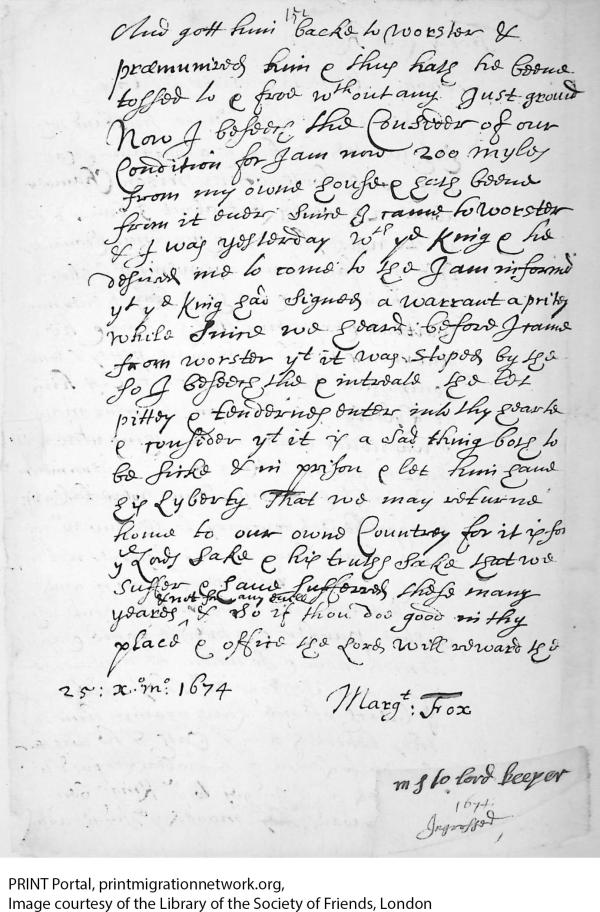 152
And gott him backe to Worster &
præmunired him & thus hath he beene
tossed to & froe wthout any Just ground
Now I beseech the Consider of our
Condition for I am now 200 myles
from my owne house & hath beene
from it ever since I came to Worster
& I was yesterday wth ye King & he
desired me to come to the I am informd
yt ye King had Signed a warrant a prity
while Since we heard before I came
from worster yt it was Stoped by the
So I beseech the & intreate the let
pittey & tendernes enter into thy hearte
& consider yt it is a Sad thing both to
be Sicke & in prison & let him have
his Lyberty That we may returne
home to our owne Countrey for it is for
ye Lords Sake & his truths Sake that we
Suffer & have Sufferred these many
& not for any evill
yeares & So if thou doe good in thy
place & office the Lord will reward the
25: x.o mo: 1674
Margt: Fox
m f to lord keeper
1674
Ingrossed
PRINT Portal, printmigrationnetwork.org,
Image courtesy of the Library of the Society of Friends, London